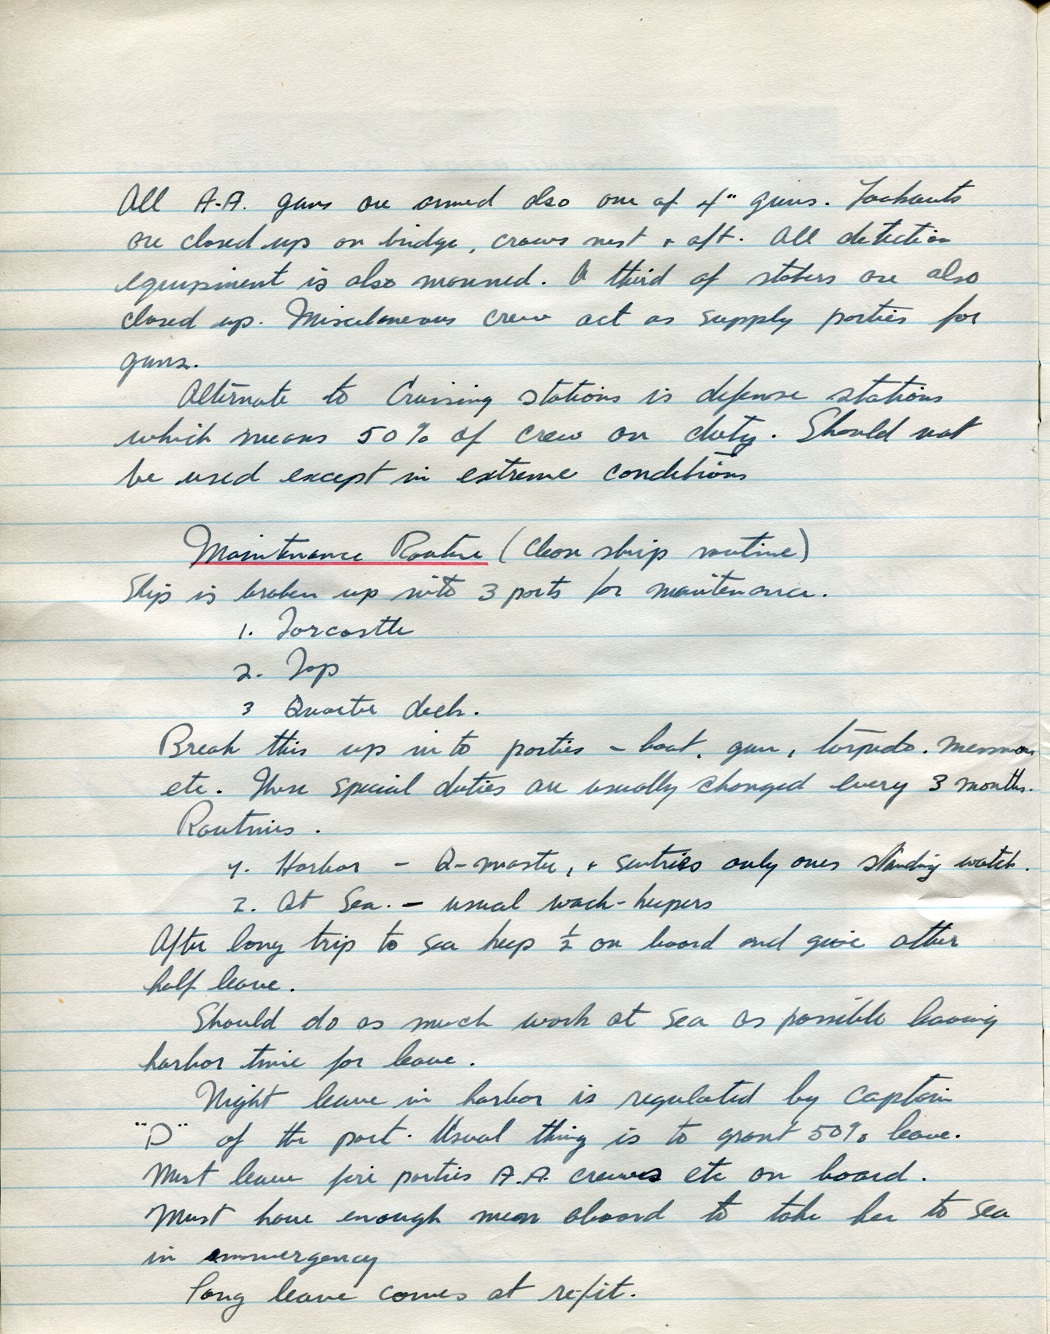 All A.A. guns are armed also one of 4" guns. Lookouts
are closed up on bridge, crows nest + aft. All detection
equipment is also manned. A third of stokers are also
closed up. Miscelaneous crew act as supply parties for
guns.
Alternate to Cruising stations is defense stations
which means 50% of crew on duty. Should not
be used except in extreme conditions
Maintenance Routine (Clean ship routine)
Ship is broken up into 3 parts for maintenance.
1. Forcastle
2. Top
3 Quarter deck.
Break this up into parties - boat, gun, torpedo. messman
etc. These special duties are usually changed every 3 months.
Routines.
1. Harbor - Q-master, + sentries only ones standing watch.
2. At Sea. - usual wach-keepers
After long trip to sea keep ½ on board and give other
half leave.
Should do as much work at sea as possible leaving
harbor time for leave.
Night leave in harbor is regulated by captain
"D" of the port. Usual thing is to grant 50% leave.
Must leave fire parties A.A. crews etc on board.
Must have enough men aboard to take her to sea
in emmergency
Long leave comes at refit.